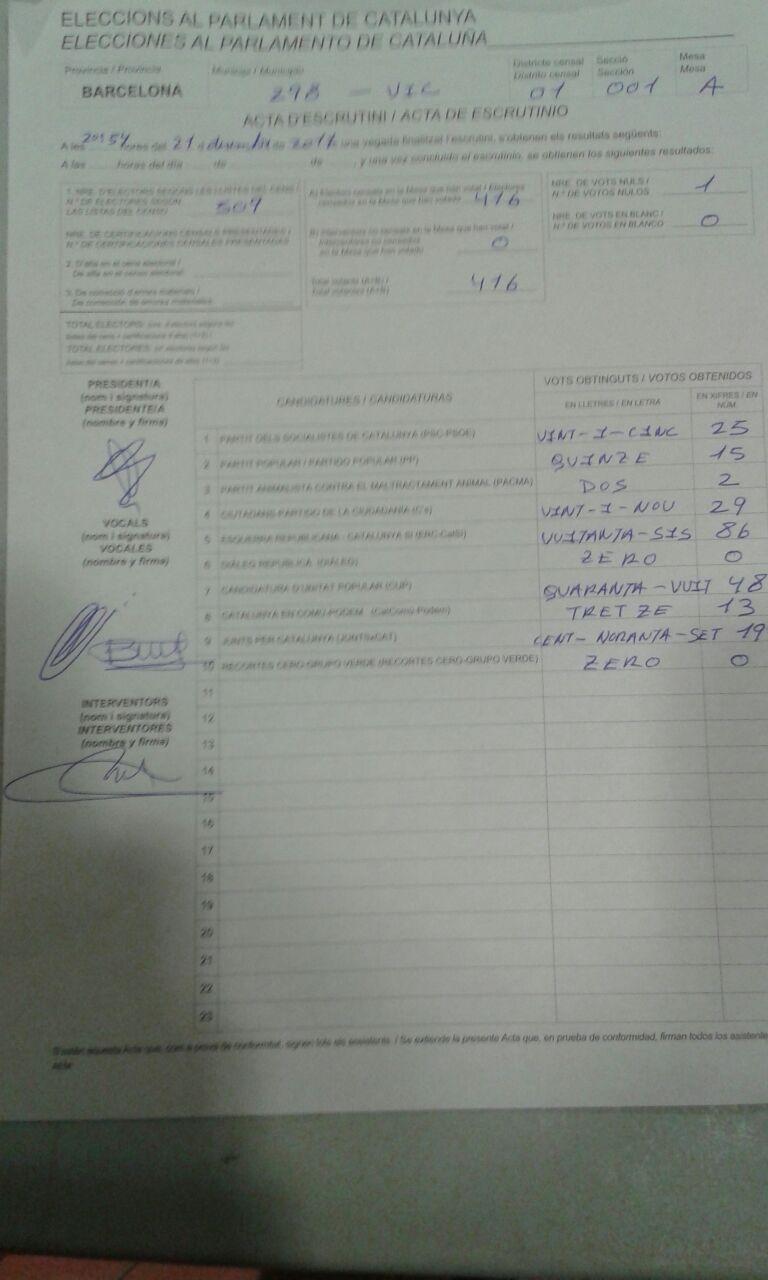 ELECCIONS AL PARLAMENT DE CATALUNYA
ELECCIONES AL PARLAMENTO DE CATALUÑA
Província / Provincia Municipi / Municipio Districte censal Secció Mesa
Distrito censal Sección Mesa
BARCELONA 298 - VIC 01 001 A
ACTA D'ESCRUTINI / ACTA DE ESCRUTINIO
A les 20:54 hores del 21 de desembre de 2017, una vegada finalitzat l'escrutini, s'obtenen els resultats següents:
A las horas del día de de , y una vez concluido el escrutinio, se obtienen los siguientes resultados:
1. NRE. D'ELECTORS SEGONS LES LLISTES DEL CENS /
N.º DE ELECTORES SEGÚN
LAS LISTAS DEL CENSO 509
NRE. DE CERTIFICACIONS CENSALS PRESENTADES /
N.º DE CERTIFICACIONES CENSALES PRESENTADAS
2. D'alta en el cens electoral /
De alta en el censo electoral
3. De correcció d'errors materials /
De corrección de errores materiales
A) Electors censats en la Mesa que han votat / Electores
censados en la Mesa que han votado 416
B) Interventors no censats en la Mesa que han votat /
Interventores no censados
en la Mesa que han votado 0
Total votants (A+B) /
Total votantes (A+B) 416
NRE. DE VOTS NULS /
N.º DE VOTOS NULOS 1
NRE. DE VOTS EN BLANC /
N.º DE VOTOS EN BLANCO 0
PRESIDENT/A
(nom i signatura)
PRESIDENTE/A
(nombre y firma)
VOCALS
(nom i signatura)
VOCALES
(nombre y firma)
INTERVENTORS
(nom i signatura)
INTERVENTORES
(nombre y firma)
CANDIDATURES / CANDIDATURAS
VOTS OBTINGUTS / VOTOS OBTENIDOS
EN LLETRES / EN LETRA EN XIFRES / EN NÚM.
1 PARTIT DELS SOCIALISTES DE CATALUNYA (PSC-PSOE) VINT-I-CINC 25
2 PARTIT POPULAR / PARTIDO POPULAR (PP) QUINZE 15
3 PARTIT ANIMALISTA CONTRA EL MALTRACTAMENT ANIMAL (PACMA) DOS 2
4 CIUTADANS-PARTIDO DE LA CIUDADANÍA (C's) VINT-I-NOU 29
5 ESQUERRA REPUBLICANA - CATALUNYA SÍ (ERC-CatSí) VUITANTA-SIS 86
6 DIÀLEG REPÚBLICA (DIÀLEG) ZERO 0
7 CANDIDATURA D'UNITAT POPULAR (CUP) QUARANTA-VUIT 48
8 CATALUNYA EN COMÚ-PODEM (CatComú-Podem) TRETZE 13
9 JUNTS PER CATALUNYA (JUNTSxCAT) CENT-NORANTA-SET 19
10 RECORTES CERO-GRUPO VERDE (RECORTES CERO-GRUPO VERDE) ZERO 0
11
12
13
14
15
16
17
18
19
20
21
22
23
S'estén aquesta Acta que, com a prova de conformitat, signen tots els assistents. / Se extiende la presente Acta que, en prueba de conformidad, firman todos los asistente
acte.